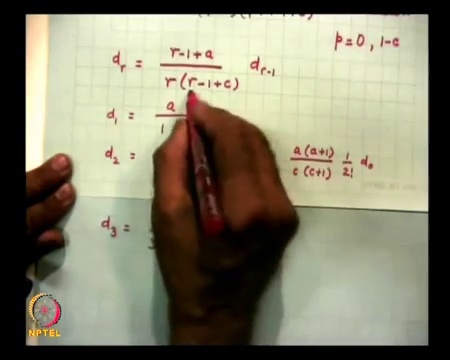 p=0, 1-c
d_r = (r-1+a) / (r(r-1+c)) d_{r-1}
d_1 = a / 1
d_2 = a(a+1) / c(c+1) 1/2! d_0
d_3 =
NPTEL